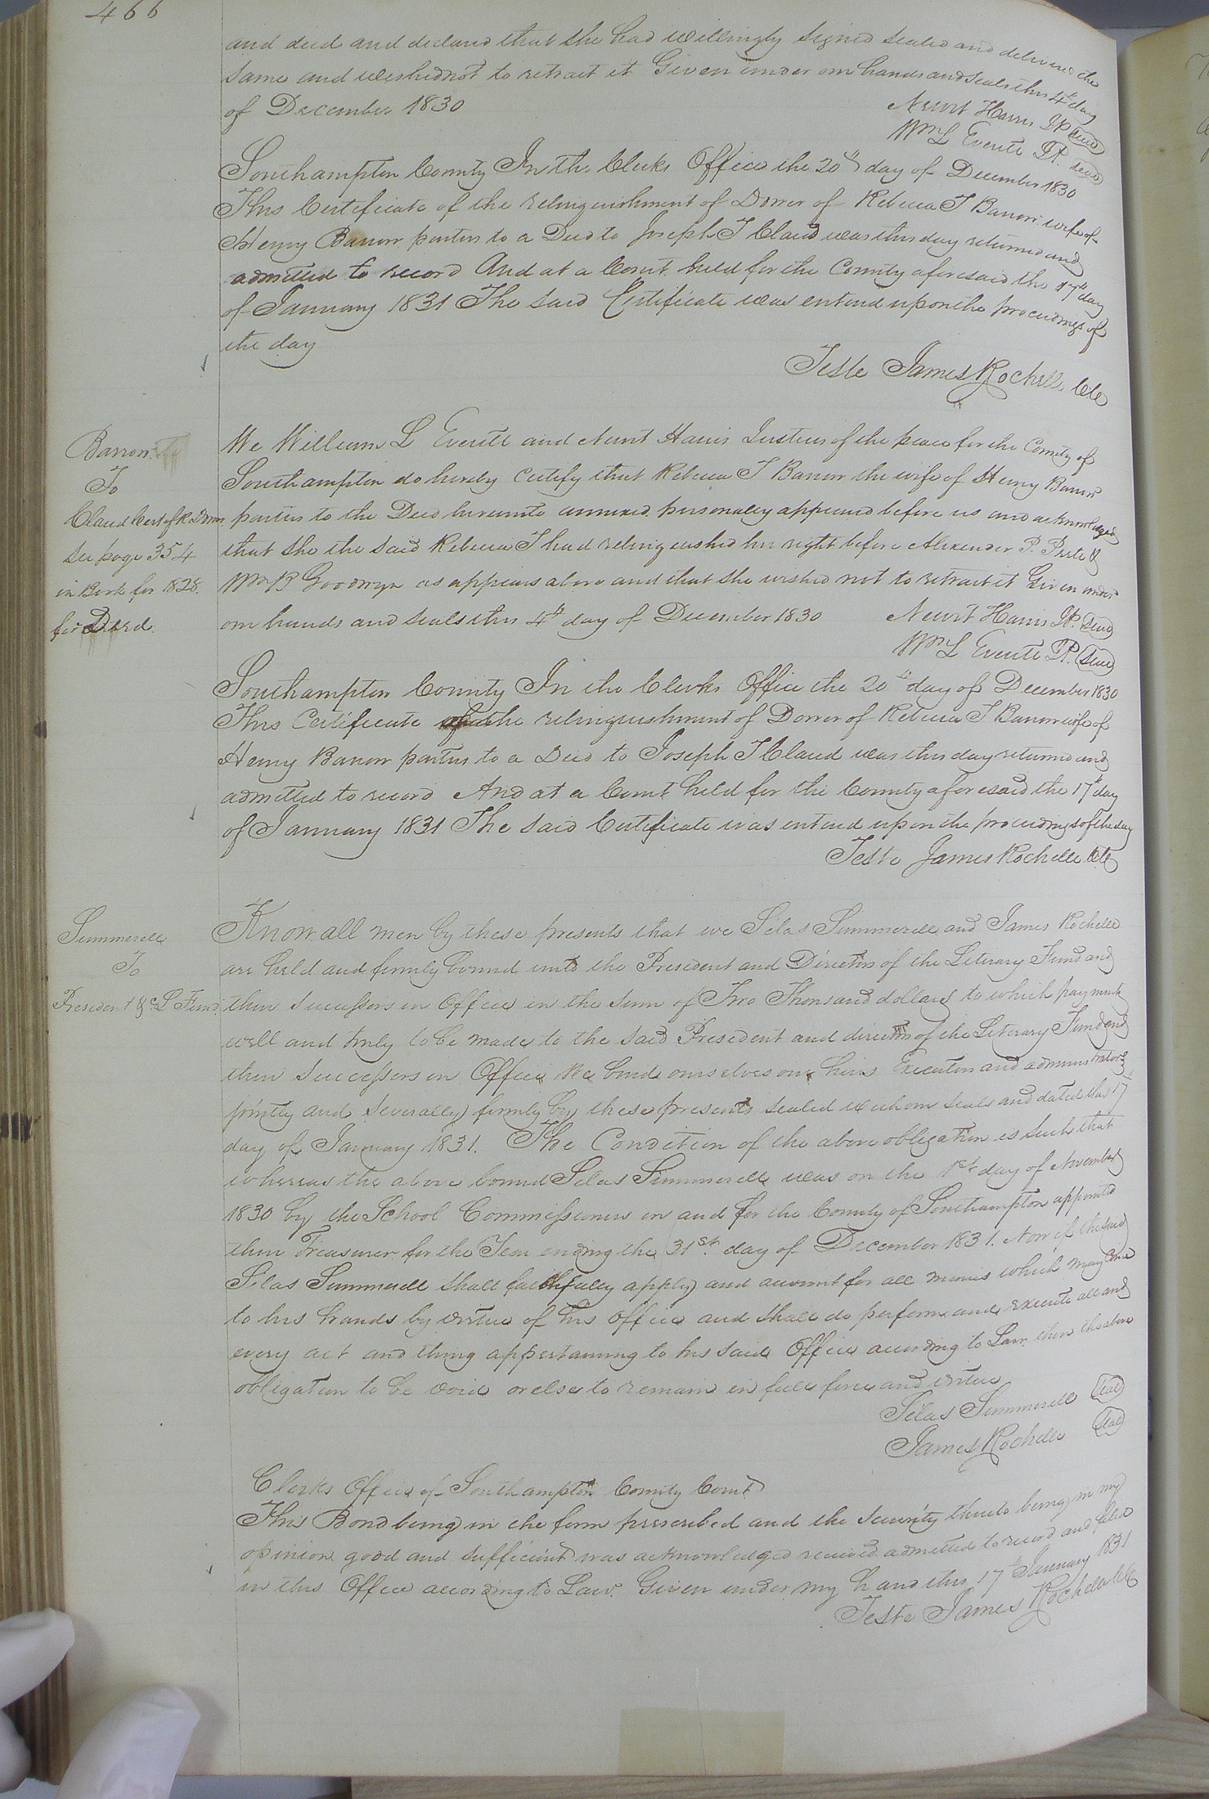 466
and deed and declared that she had willingly signed sealed and delivered the
same and wished not to retract it Given under our hands and seals this 4th day
of December 1830
Newit Harris JP Seal
Wm L Everitt JP. Seal
Southampton County In the Clerks Office the 20th day of December 1830
This Certificate of the relinquishment of Dower of Rebecca T Barrow wife of
Henry Barrow parties to a Deed to Joseph T Claud was this day returned and
admitted to record And at a Court held for the County aforesaid the 17th day
of January 1831 The said Certificate was enterd upon the proceedings of
the day
Teste James Rochelle Clk
Barrow
To
Claud Cert of R. Dower
See page 354
in Book for 1828.
for Deed.
We William L Everitt and Newit Harris Justices of the peace for the County of
Southampton do hereby certify that Rebecca T Barrow the wife of Henry Barrow
parties to the Deed hereunto annexed personally appeared before us and acknowledged
that she the said Rebecca T had relinquished her right before Alexander P. &
Wm B Goodwyn as appears above and that she wished not to retract it Given under
our hands and seals this 4th day of December 1830
Newit Harris JP. Seal
Wm L Everitt JP. Seal
Southampton County In the Clerks Office the 20th day of December 1830
This Certificate of the relinquishment of Dower of Rebecca T Barrow wife of
Henry Barrow parties to a Deed to Joseph T Claud was this day returned and
admitted to record And at a Court held for the County aforesaid the 17th day
of January 1831 The said Certificate was enterd upon the proceedings of the day
Teste James Rochelle Clk
Summerell
To
President &c L Fund
Know all men by these presents that we Silas Summerell and James Rochelle
are held and firmly bound unto the President and Directors of the Literary Fund and
their Successors in Office in the sum of Two Thousand dollars to which payment
will and truly to be made to the said President and directors of the Literary Fund and
their Successors in Office We bind ourselves our heirs Executors and administrators
jointly and severally firmly by these presents sealed with our seals and dated this 17th
day of January 1831. The Condition of the above obligation is such that
whereas the above bound Silas Summerell was on the 1st day of November
1830 by the School Commissioners in and for the County of Southampton appointed
their Treasurer for the Year ending the 31st. day of December 1831. Now if the said
Silas Summerell shall faithfully apply and account for all monies which may come
to his hands by virtue of his office and shall do perform and execute all and
every act and thing appertaining to his said Office according to Law. then the above
obligation to be void or else to remain in full force and virtue
Silas Summerell Seal
James Rochelle Seal
Clerks Office of Southampton County Court
This Bond being in the form prescribed and the security thereto being in my
opinion good and sufficient was acknowledged received admitted to record and filed
in this Office according to Law. Given under my hand this 17th January 1831
Teste James Rochelle Clk